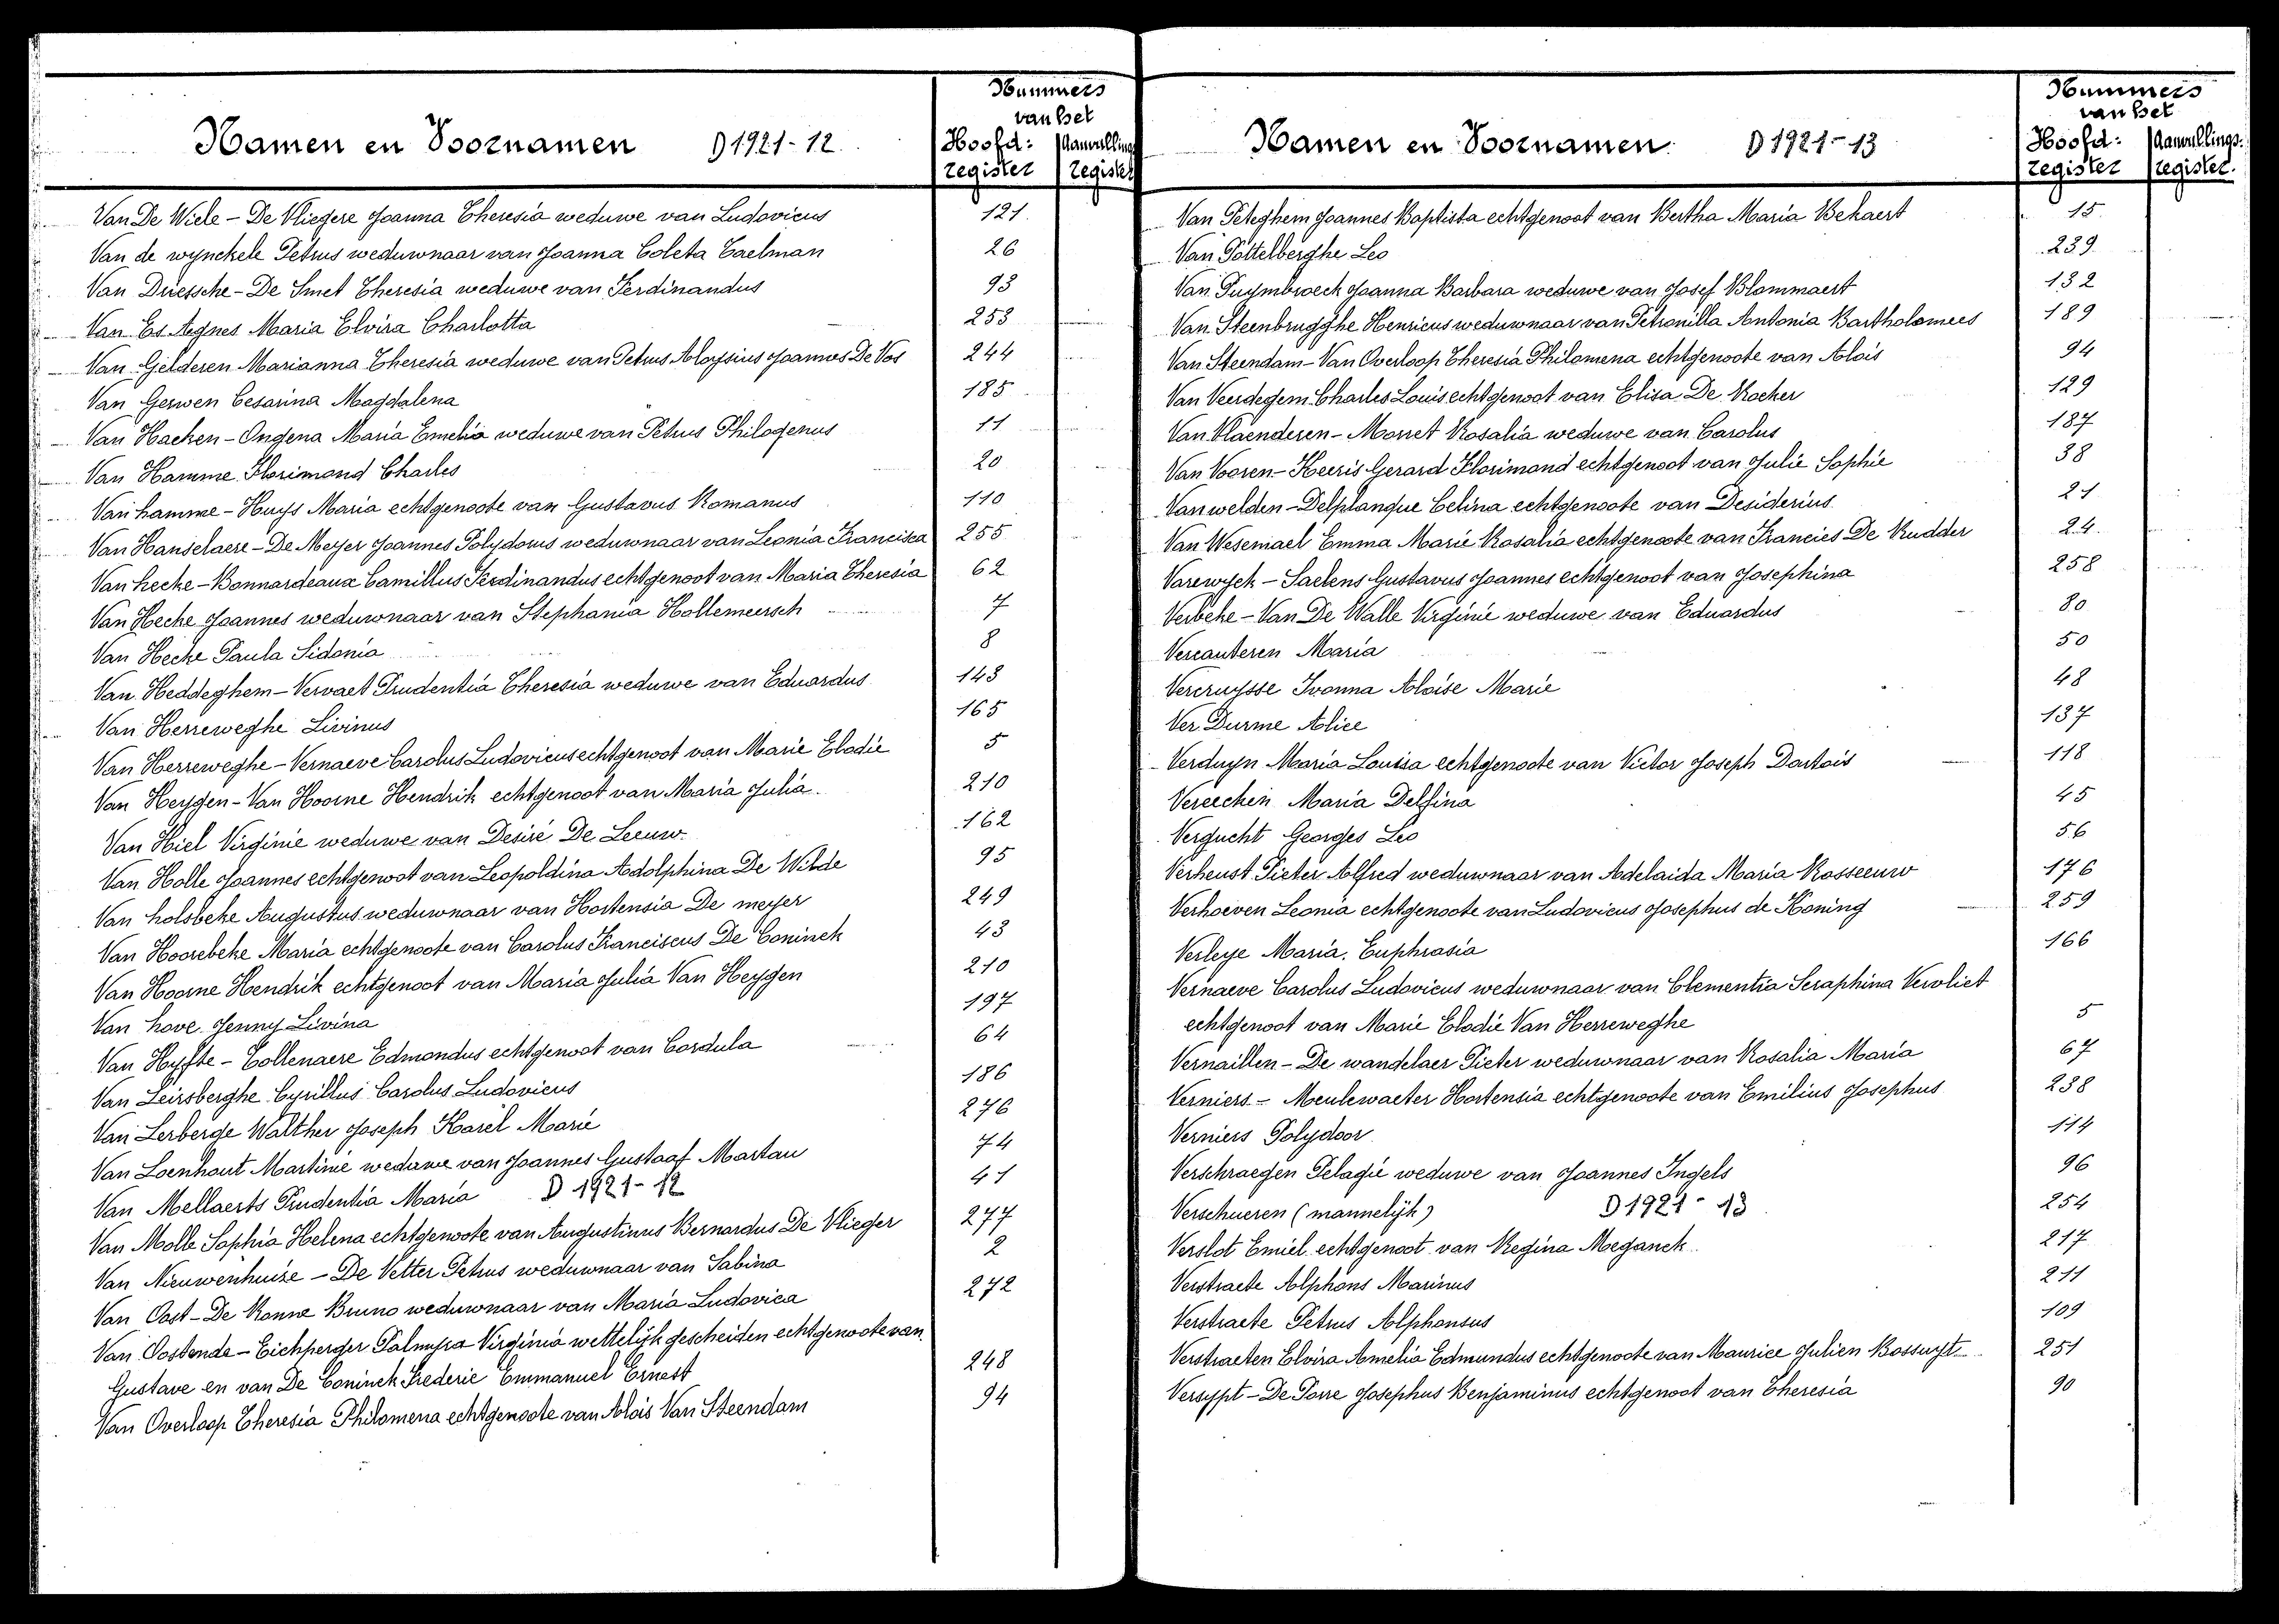 Namen en Voornamen D 1921-12.
Nummers
van het
Hoofd: Aanvullings
register register
Van De Wiele - De Vliegere Joanna Theresia weduwe van Ludovicus 121.
Van de wynckele Petrus weduwnaar van Joanna Coleta Caelman 26
Van Driessche - De Smet Theresia weduwe van Ferdinandus 93
Van Es Agnes Maria Elvira Charlotta 253
Van Gelderen Marianna Theresia weduwe van Petrus Aloysius Joannes De Vos 244
Van Gerwen Cesarina Magdalena 185
Van Haeken - Ongena Maria Emelia weduwe van Petrus Philogenus 11
Van Hamme Florimond Charles 20
Van hamme - Huys Maria echtgenoote van Gustavus Romanus 110
Van Hanselaere - De Meyer Joannes Polydorus weduwnaar van Leonia Francisca 255
Van hecke - Bonnardeaux Camillus Ferdinandus echtgenoot van Maria Theresia 62
Van Hecke Joannes weduwnaar van Stephania Hollemeersch 7
Van Hecke Paula Sidonia 8
Van Heddeghem - Vervaet Prudentia Theresia weduwe van Eduardus 143
Van Herreweghe Livinus 165
Van Herreweghe - Vernaeve Carolus Ludovicus echtgenoot van Marie Elodie 5
Van Heygen - Van Hoorne Hendrik echtgenoot van Maria Julia. 210
Van Hiel Virginie weduwe van Desiré De Leeuw. 162
Van Holle Joannes echtgenoot van Leopoldina Adolphina De Wilde 95
Van holsbeke Augustus weduwnaar van Hortensia De meyer 249
Van Hoorebeke Maria echtgenoote van Carolus Franciscus De Coninck 43
Van Hoorne Hendrik echtgenoot van Maria Julia Van Heygen 210
Van hove Jenny Livina 197
Van Hyfte - Collenaere Edmondus echtgenoot van Cordula 64
Van Leirsberghe Cyrillus Carolus Ludovicus 186
Van Lerberge Walther Joseph Karel Marie 276
Van Loenhout Martinie weduwe van Joannes Gustaaf Martau 74
Van Mellaerts Prudentia Maria D 1921-12 41
Van Molle Sophia Helena echtgenoote van Augustinus Bernardus De Vlieger 277
Van Nieuwenhuize - De Vetter Petrus weduwnaar van Sabina 2
Van Oost - De Konne Bruno weduwnaar van Maria Ludovica 272
Van Oostende - Eichperger Palmyra Virginia wettelijk gescheiden echtgenoote van
Gustave en van De Coninck Frederic Emmanuel Ernest 248
Van Overloop Theresia Philomena echtgenoote van Alois Van Steendam 94
Namen en Voornamen D 1921-13
Nummers
van het
Hoofd: Aanvullings:
register register.
Van Peteghem Joannes Baptista echtgenoot van Bertha Maria Bekaert 15
Van Pottelberghe Leo 239
Van Puymbroeck Joanna Barbara weduwe van Josef Blommaert 132
Van Steenbrugghe Henricus weduwnaar van Petronilla Antonia Bartholomees 189
Van Steendam - Van Overloop Theresia Philomena echtgenoote van Alois 94
Van Veerdegem Charles Louis echtgenoot van Elisa De Kocker 129
Van Vlaenderen - Morret Rosalia weduwe van Carolus 187
Van Vooren - Heeris Gerard Florimond echtgenoot van Julie Sophie 38
Van welden - Delplanque Celina echtgenoote van Desiderius 21
Van Wesemael Emma Marie Rosalia echtgenoote van Francies De Rudder 24.
Varewyck - Saelens Gustavus Joannes echtgenoot van Josephina 258
Verbeke - Van De Walle Virginie weduwe van Eduardus 80
Vercauteren Maria 50
Vercruysse Ivonna Aloise Marie 48
Ver Durme Alice 137
Verduyn Maria Louisa echtgenoote van Victor Joseph Dartois 118
Vereecken Maria Delfina 45
Vergucht Georges Leo 56
Verheust Pieter Alfred weduwnaar van Adelaida Maria Rosseeuw 176
Verhoeven Leonia echtgenoote van Ludovicus Josephus de Koning 259
Verleye Maria, Euphrasia 166
Vernaeve Carolus Ludovicus weduwnaar van Clementia Seraphina Vervliet
echtgenoot van Marie Elodie Van Herreweghe 5
Vernaillen - De wandelaer Pieter weduwnaar van Rosalia Maria 67
Verniers - Meulewaeter Hortensia echtgenoote van Emilius Josephus 238
Verniers Polydoor 114
Verschraegen Pelagie weduwe van Joannes Ingels 96
Verschueren (mannelijk) D 1921-13 254
Verslot Emiel echtgenoot van Regina Meganck 217
Verstraete Alphons Marinus 211
Verstraete Petrus Alphonsus 109
Verstraeten Elvira Amelia Edmundus echtgenoote van Maurice Julien Bossuyt 251
Versypt - De Porre Josephus Benjaminus echtgenoot van Theresia 90